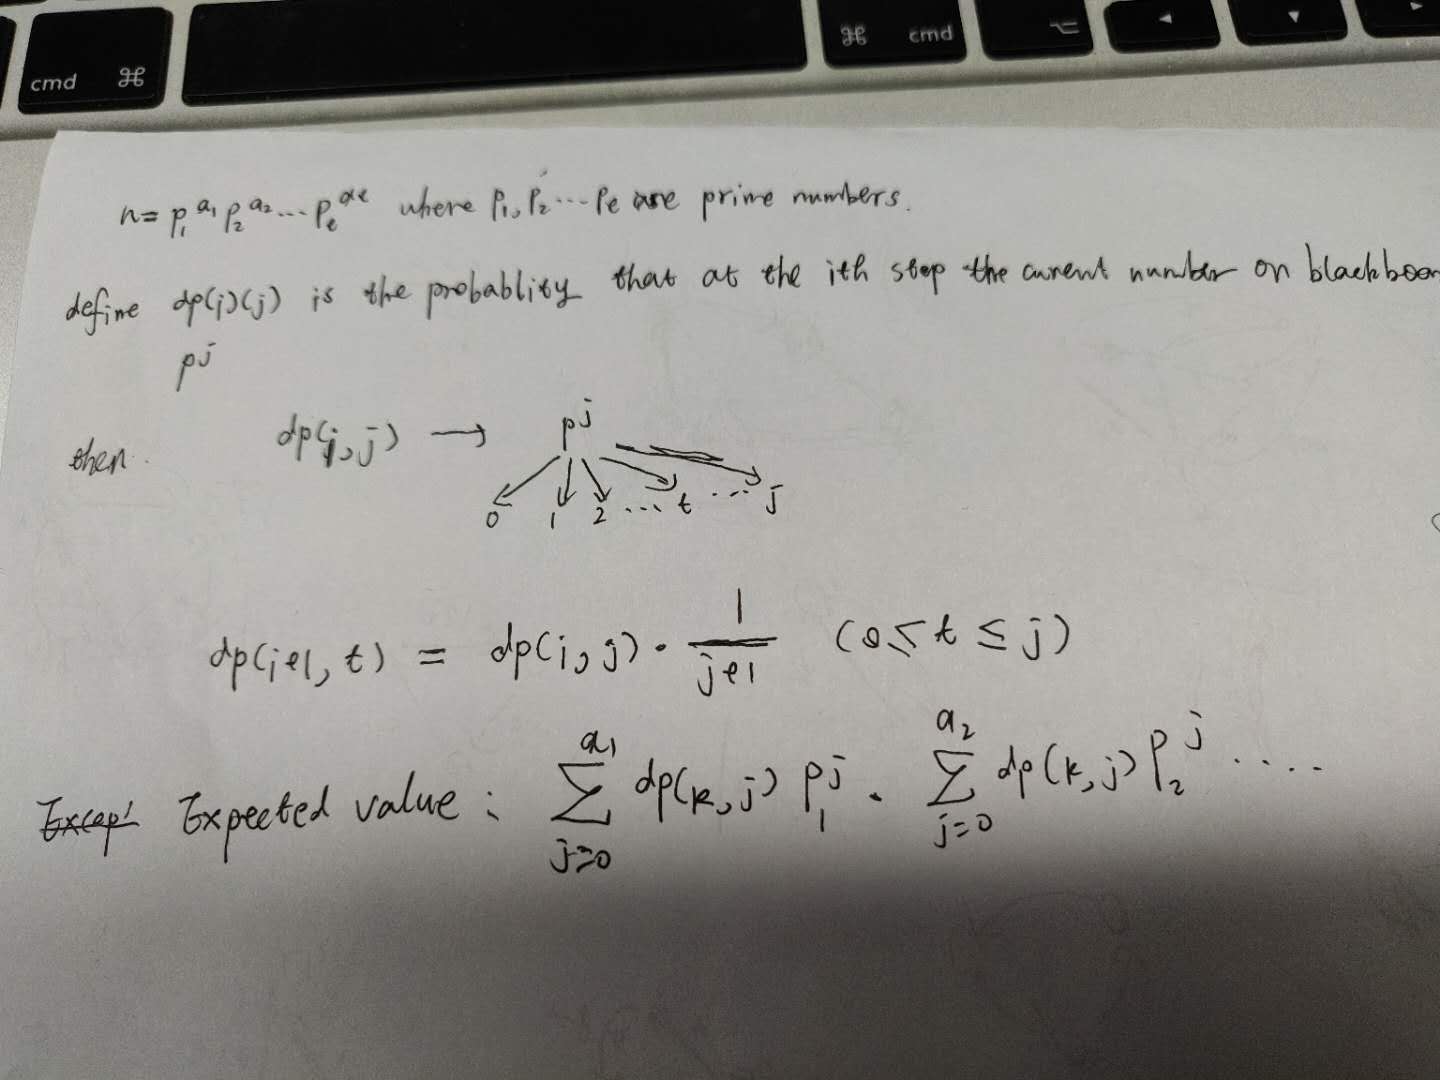 cmd ⌘
⌘ cmd ⌥ ◄ ▼ ►
n = p₁^a₁ p₂^a₂ ... p_e^αe where P₁, P₂ ... Pe are prime numbers.
define dp(i)(j) is the probablity that at the ith step the current number on blackboar
p^j
then. dp(i,j) → p^j
0 1 2 ... t ... j
dp(i+1, t) = dp(i, j) · 1/(j+1) (0 ≤ t ≤ j)
Expected value : ∑_{j=0}^{a₁} dp(k, j) P₁^j · ∑_{j=0}^{a₂} dp(k, j) P₂^j ....